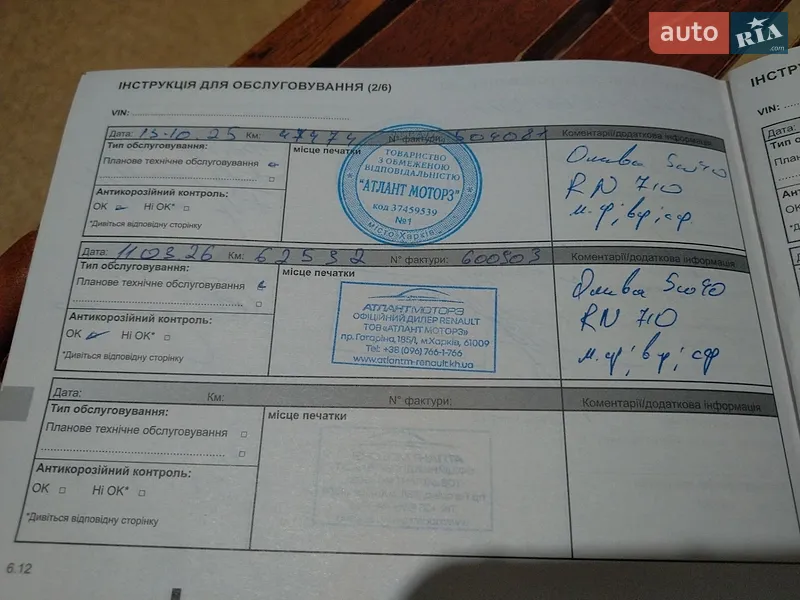 auto RIA.com
ІНСТРУКЦІЯ ДЛЯ ОБСЛУГОВУВАННЯ (2/6)
VIN:
Дата: 13.10.25 Км: 47474 N° фактури: 604081 Коментарії/додаткова інформація
Тип обслуговування:
Планове технічне обслуговування
Антикорозійний контроль:
OK Ні OK*
*Дивіться відповідну сторінку
місце печатки
ТОВАРИСТВО
З ОБМЕЖЕНОЮ
ВІДПОВІДАЛЬНІСТЮ
"АТЛАНТ МОТОРЗ"
код 37459539
№1
місто Харків
Олива 5w40
RN 710
м.ф; вф; сф
Дата: 11 03 26 Км: 62532 N° фактури: 600903 Коментарії/додаткова інформація
Тип обслуговування:
Планове технічне обслуговування
Антикорозійний контроль:
OK Ні OK*
*Дивіться відповідну сторінку
місце печатки
АТЛАНТ МОТОРЗ
ОФІЦІЙНИЙ ДИЛЕР RENAULT
ТОВ «АТЛАНТ МОТОРЗ»
пр. Гагаріна, 185/1, м.Харків, 61009
Tel: +38 (096) 766-1-766
www.atlantm-renault.kh.ua
Олива 5w40
RN 710
м.ф; вф; сф
Дата: Км: N° фактури: Коментарії/додаткова інформація
Тип обслуговування:
Планове технічне обслуговування
Антикорозійний контроль:
OK Ні OK*
*Дивіться відповідну сторінку
місце печатки
6.12
ІНСТРУ
VIN:
Дата:
Тип о
Планов
Антик
OK
*Диві